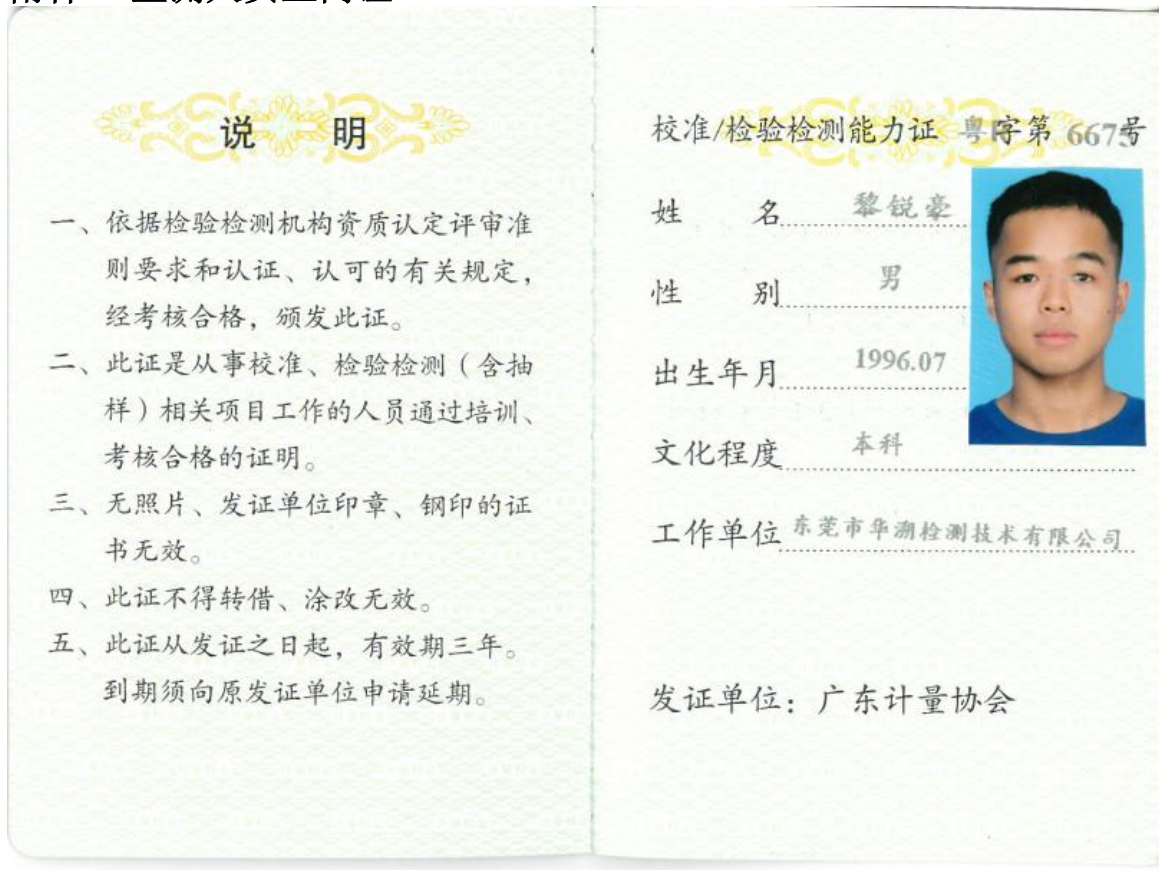 说 明
一、依据检验检测机构资质认定评审准
则要求和认证、认可的有关规定，
经考核合格，颁发此证。
二、此证是从事校准、检验检测（含抽
样）相关项目工作的人员通过培训、
考核合格的证明。
三、无照片、发证单位印章、钢印的证
书无效。
四、此证不得转借、涂改无效。
五、此证从发证之日起，有效期三年。
到期须向原发证单位申请延期。
校准/检验检测能力证 粤 字第 6675号
姓 名 黎锐豪
性 别 男
出生年月 1996.07
文化程度 本科
工作单位 东莞市华溯检测技术有限公司
发证单位：广东计量协会